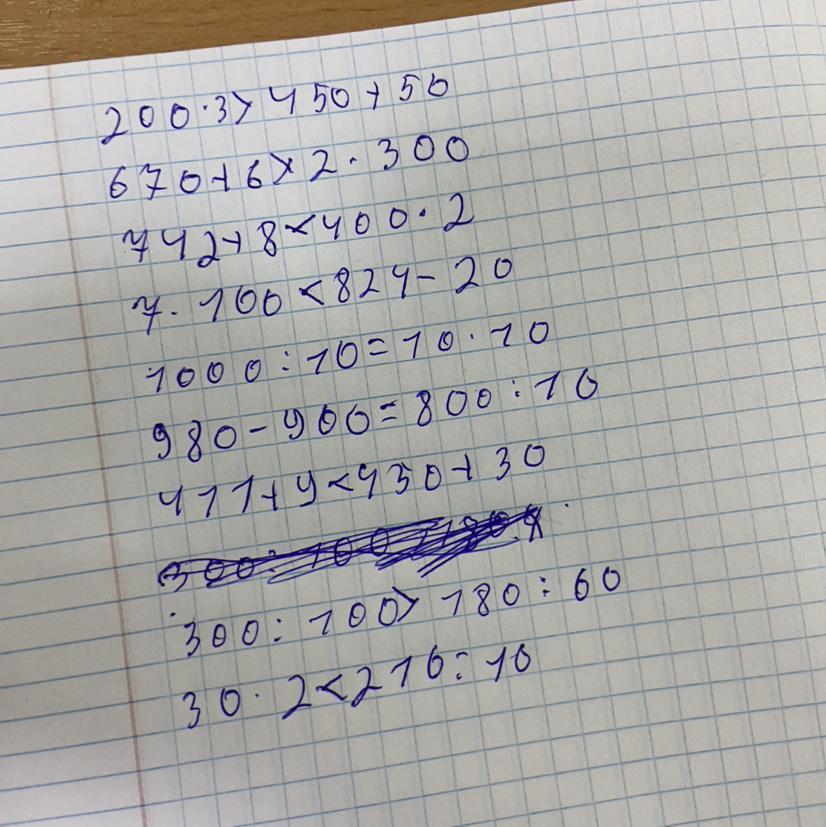 200·3>450+50
670+6>2·300
742+8<400·2
7·100<824-20
1000:10=10·10
980-900=800:10
411+9<430+30
300:100>180:60
30·2<210:10